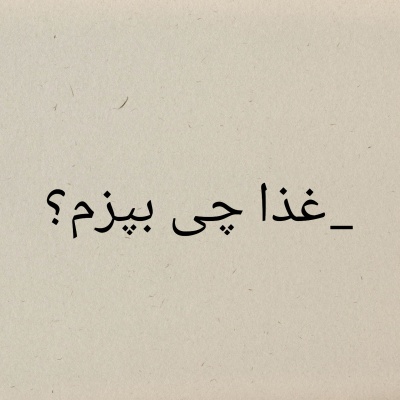 _غذا چی بپزم؟